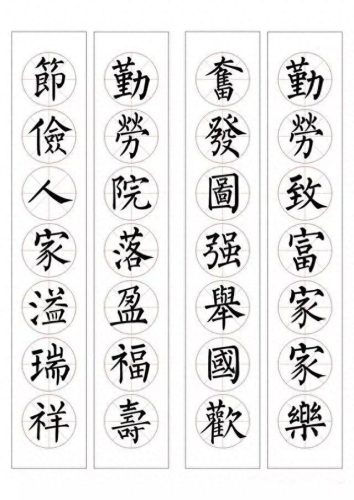 勤勞致富家家樂
奮發圖强舉國歡
勤勞院落盈福壽
節儉人家溢瑞祥